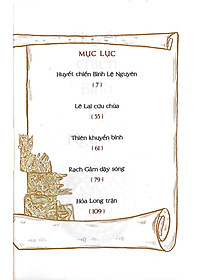 MỤC LỤC
Huyết chiến Bình Lệ Nguyên
(7)
Lê Lai cứu chúa
(35)
Thiên khuyển binh
(61)
Rạch Gầm dậy sóng
(79)
Hỏa Long trận
(109)